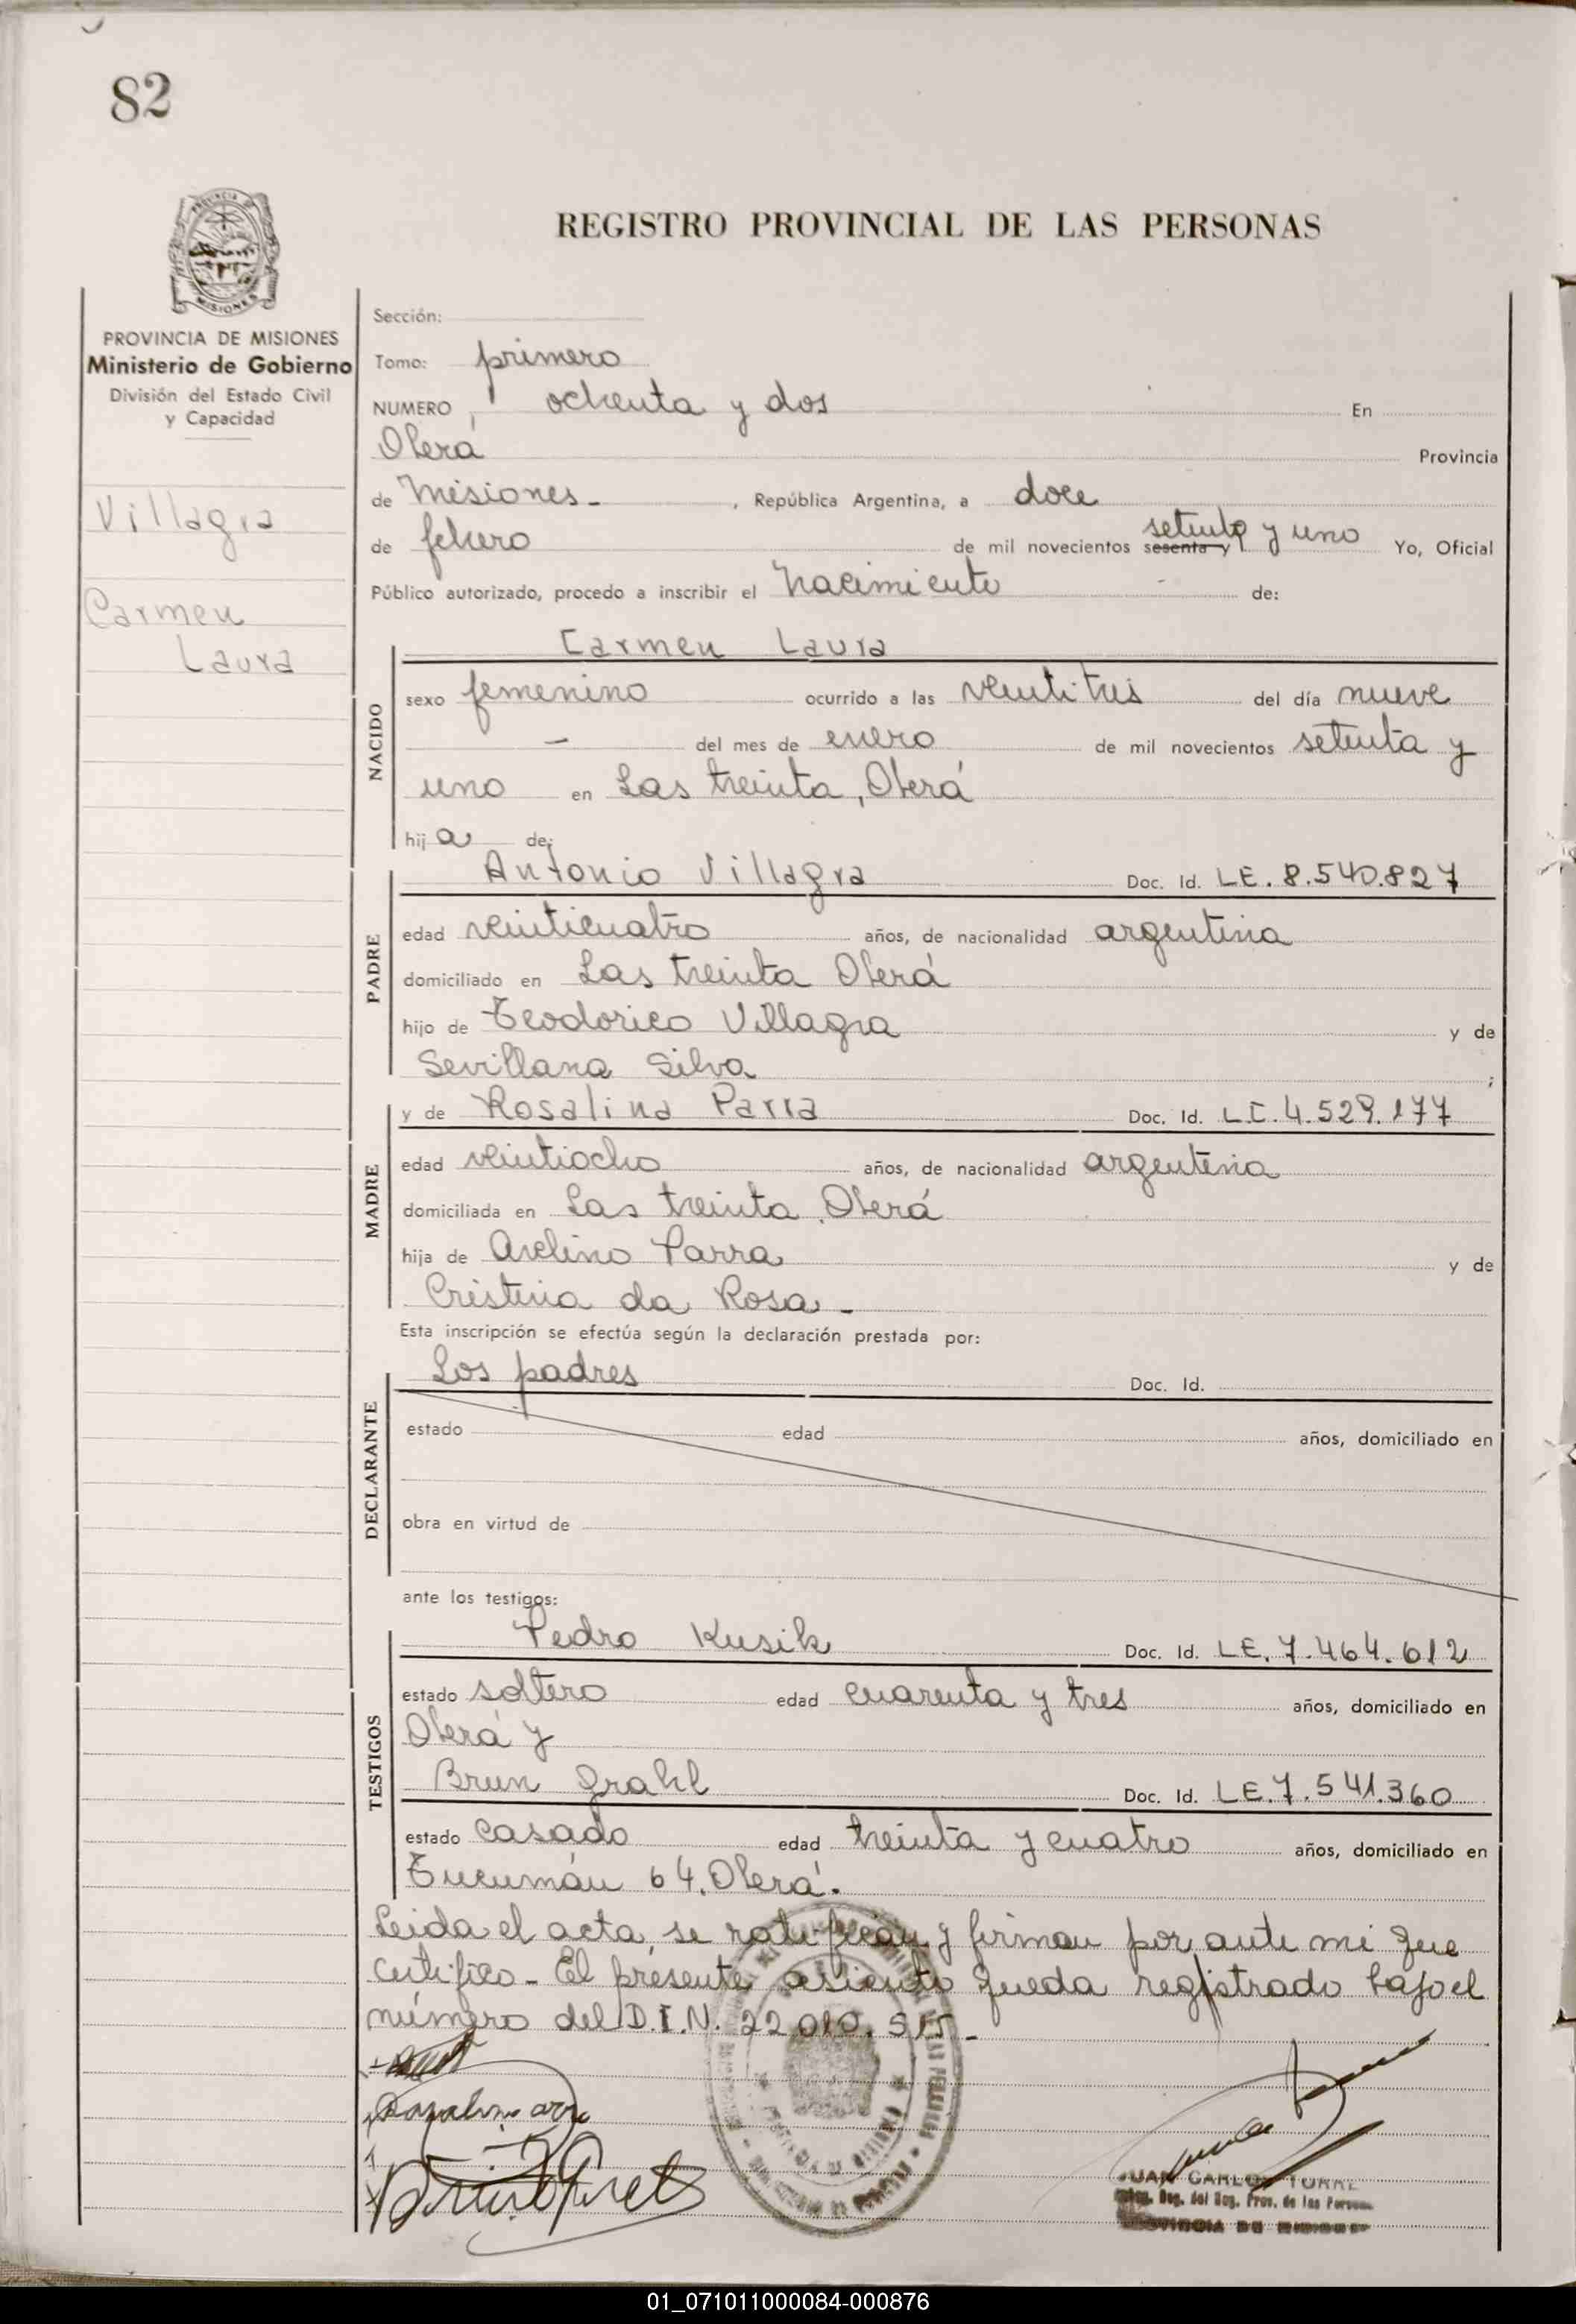 82
REGISTRO PROVINCIAL DE LAS PERSONAS
PROVINCIA DE MISIONES
Ministerio de Gobierno
División del Estado Civil
y Capacidad
Villagra
Carmen
Laura
Sección:
Tomo: primero
NUMERO ochenta y dos En
Oberá Provincia
de Misiones_ , República Argentina, a doce
de febrero de mil novecientos sesenta y setenta y uno Yo, Oficial
Público autorizado, procedo a inscribir el Nacimiento de:
Carmen Laura
NACIDO
sexo femenino ocurrido a las veintitres del día nueve
— del mes de enero de mil novecientos setenta y
uno en Las treinta, Oberá
hij a de:
Antonio Villagra Doc. Id. LE. 8.540.827
PADRE
edad veinticuatro años, de nacionalidad argentina
domiciliado en Las treinta Oberá
hijo de Teodorico Villagra y de
Sevillana Silva ;
y de Rosalina Parra Doc. Id. LC. 4.529.177
MADRE
edad veintiocho años, de nacionalidad argentina
domiciliada en Las treinta, Oberá
hija de Avelino Parra y de
Cristina da Rosa -
Esta inscripción se efectúa según la declaración prestada por:
Los padres Doc. Id.
DECLARANTE
estado edad años, domiciliado en
obra en virtud de
ante los testigos:
Pedro Kusik Doc. Id. LE. 7.464.612
TESTIGOS
estado soltero edad cuarenta y tres años, domiciliado en
Oberá y
Brun Grahl Doc. Id. LE. 7.541.360
estado casado edad treinta y cuatro años, domiciliado en
Tucumán 64. Oberá.
Leida el acta, se ratifican y firman por ante mi que
certifico - El presente asiento queda registrado bajo el
número del D.I.N. 22.010.515 -
JUAN CARLOS TORRE
Reg. del Reg. Prov. de las Personas
PROVINCIA DE MISIONES
01_071011000084-000876